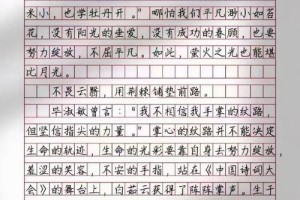 米小，也学牡丹开。”哪怕我们平凡渺小如苔
花，没有阳光的垂爱，没有成功的眷顾，也要
努力绽放，不屈平凡。如此，萤火之光也能堪
比月光。
不畏云翳，用荆棘铺垫前路。
毕淑敏曾言：“我不相信我手掌的纹路，
但坚信指尖的力量。”掌心的纹路并不能决定
生命的轨迹，生命的光彩要靠自身去努力绽放，
羞涩的笑容，不安的手指，站在《中国诗词大
会》的舞台上，白茹云获得了阵阵掌声。生于